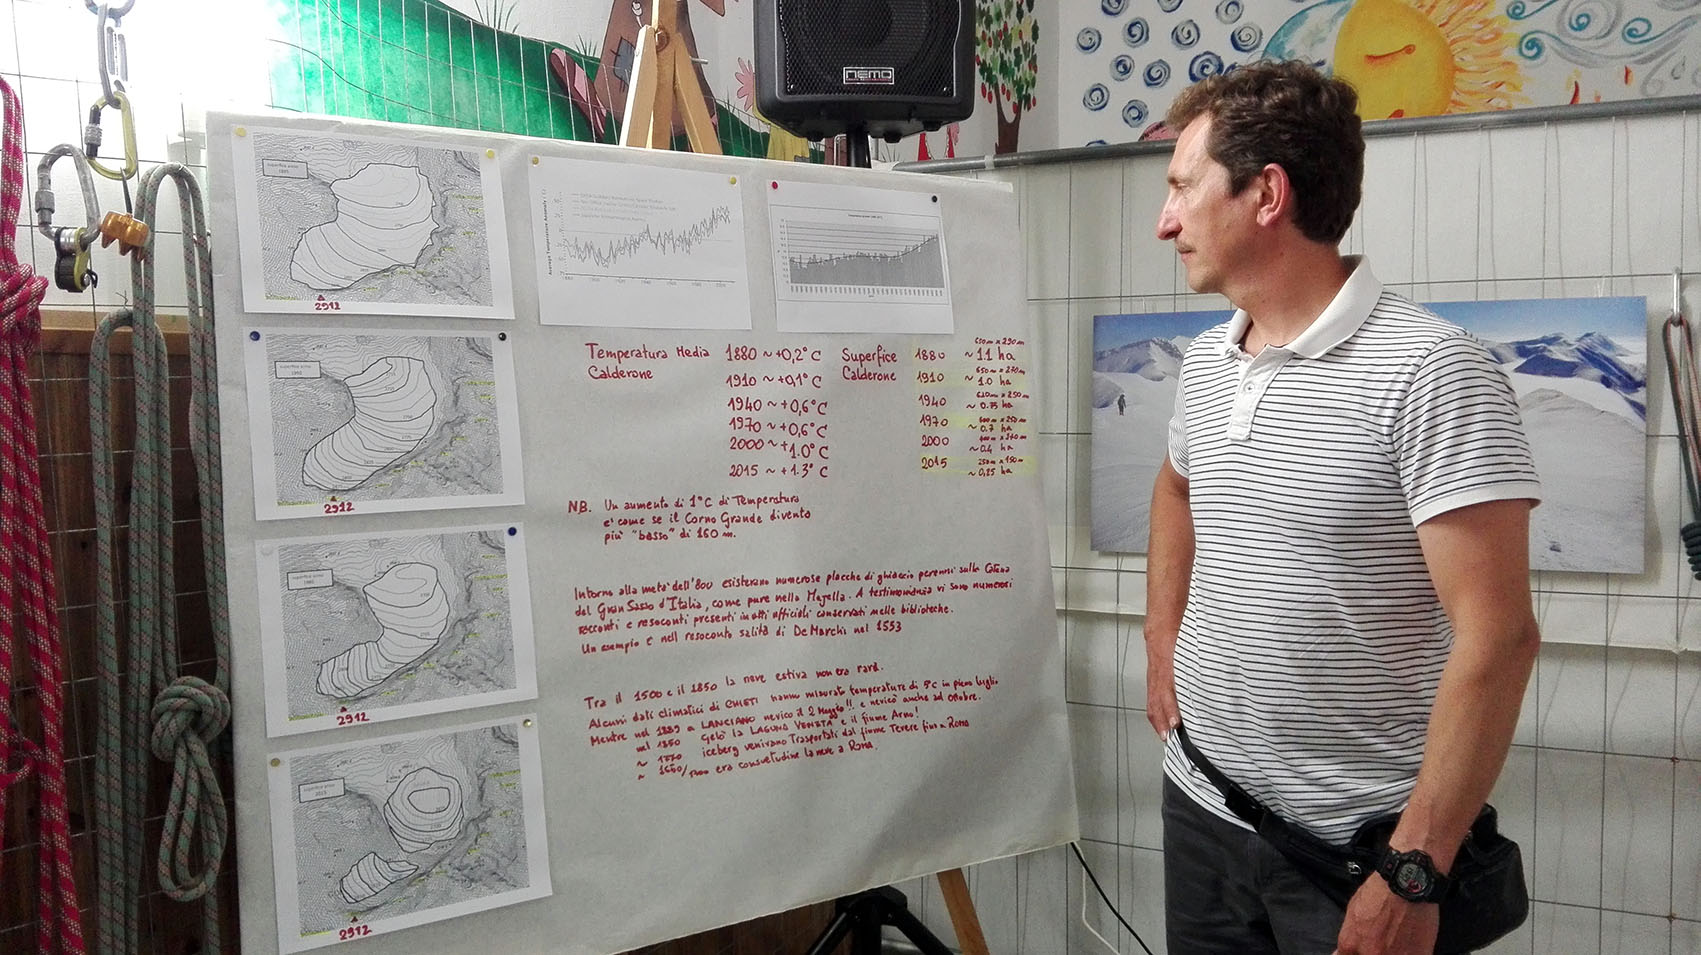 NEMO
superficie anno
1885
2912
superficie anno
1990
2912
superficie anno
2912
superficie anno
2015
2912
Temperatura Media
Calderone
1880 ~ +0,2° C
1910 ~ +0,1° C
1940 ~ +0,6° C
1970 ~ +0,6° C
2000 ~ +1.0° C
2015 ~ +1.3° C
Superfice
Calderone
1880 ~ 1.1 ha
1910 ~ 1.0 ha
1940 ~ 0.75 ha
1970 ~ 0.7 ha
2000 ~ 0.4 ha
2015 ~ 0,25 ha
N.B. Un aumento di 1°C di Temperatura
e' come se il Corno Grande divento
piu' "basso" di 160 m.
Intorno alla meta' dell'800 esisterano numerose placche di ghiaccio perenni sulla Catena
del Gran Sasso d'Italia, come pure nella Majella. A testimonianza vi sono numerosi
racconti e resoconti presenti in atti officiali conservati nelle biblioteche.
Un esempio e' nell resoconto salita di De Marchi nel 1553
Tra il 1500 e il 1850 la neve estiva non era rara.
Alcuni dati climatici di CHIETI hanno misurato temperature di 5°C in pieno luglio
Mentre nel 1889 a LANCIANO nevico il 2 Maggio!! e nevico' anche ad ottobre.
nel 1850 Gelo' la LAGUNA VENETA e il fiume Arno!
~ 1770 iceberg venivano Trasportati dal fiume Tevere fino a Roma
~ 1650/1700 era consuetudine la neve a Roma.